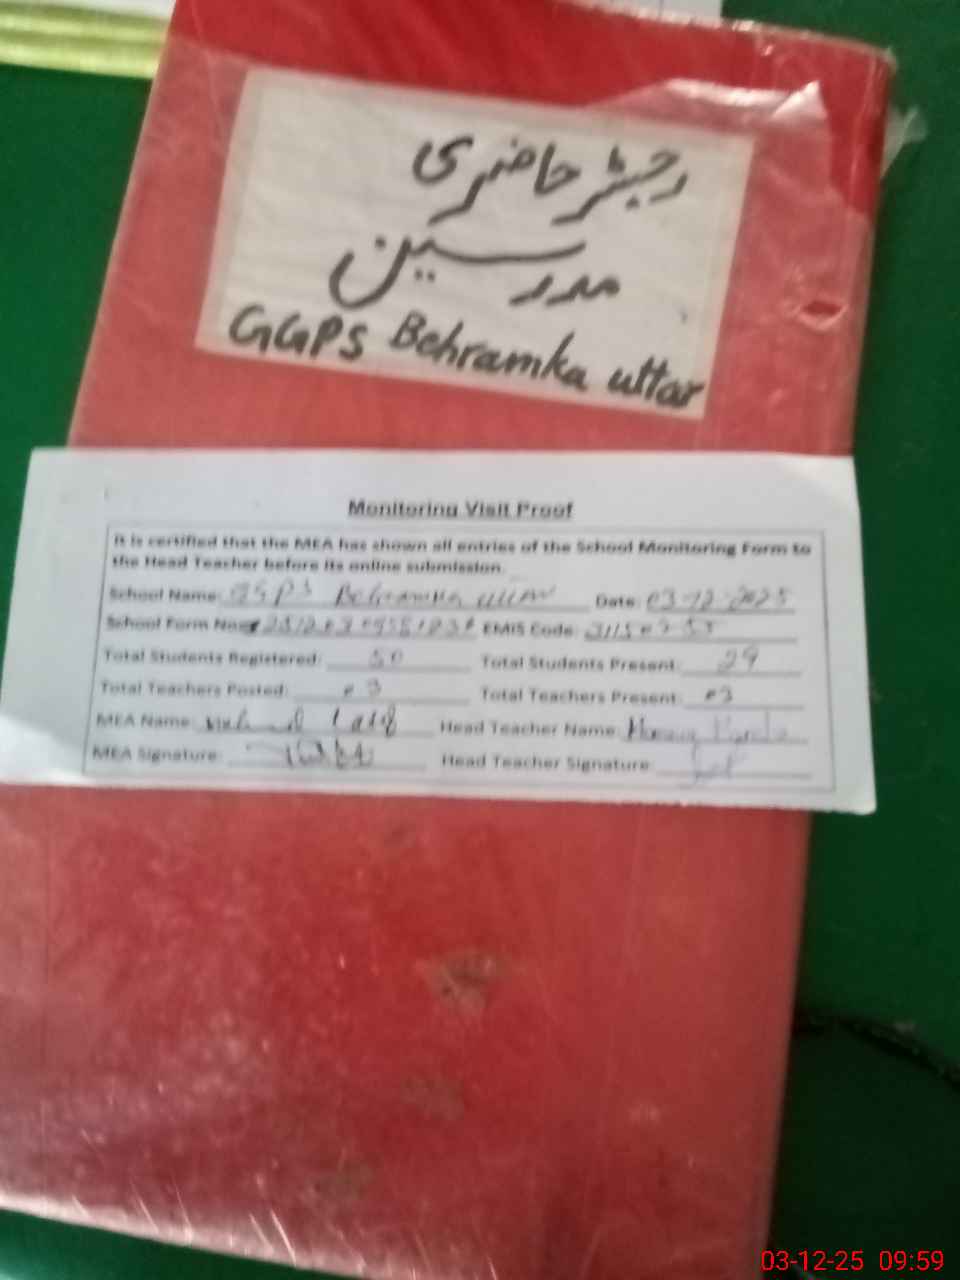 رجسٹر حاضری
مدرسین
GGPS Behramka uttar
Monitoring Visit Proof
It is certified that the MEA has shown all entries of the School Monitoring Form to
the Head Teacher before its online submission.
School Name: GGPS Behramka uttar Date: 03-12-2025
School Form No: EMIS Code:
Total Students Registered: 50 Total Students Present: 29
Total Teachers Posted: 03 Total Teachers Present: 03
MEA Name: Latif Head Teacher Name:
MEA Signature: Head Teacher Signature:
03-12-25 09:59